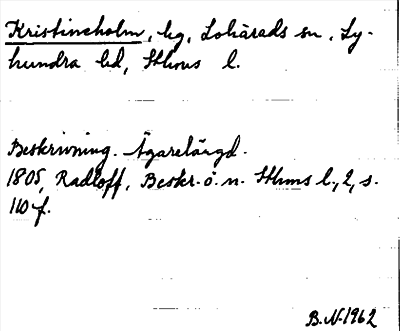 Kristineholm, hg, Lohärads sn, Ly-
hundra hd, Sthms l.
Beskrivning. Ägarelängd.
1805, Radloff, Beskr. ö. n. Sthms l., 2, s.
110 f.
B. N. 1962